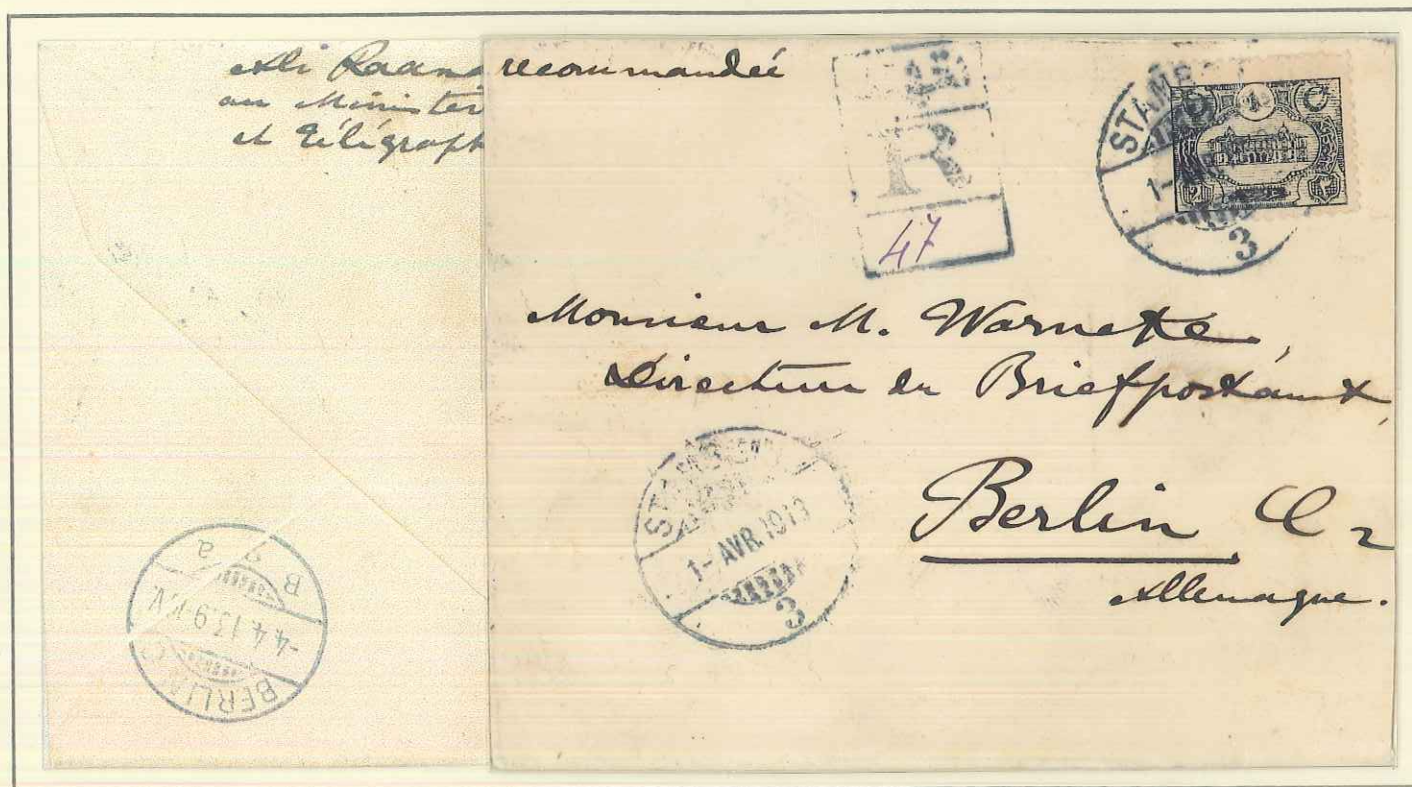 Ali Raana
au Minister
et Télégraph
recommandée
R
47
STAMB
1-
3
Monsieur M. Warneke,
Directeur du Briefpostamt,
Berlin C 2
Allemagne.
STAMBOUL
1- AVR. 1913
3
BERLIN C
-4.4.13.9-10V.
B 2 a